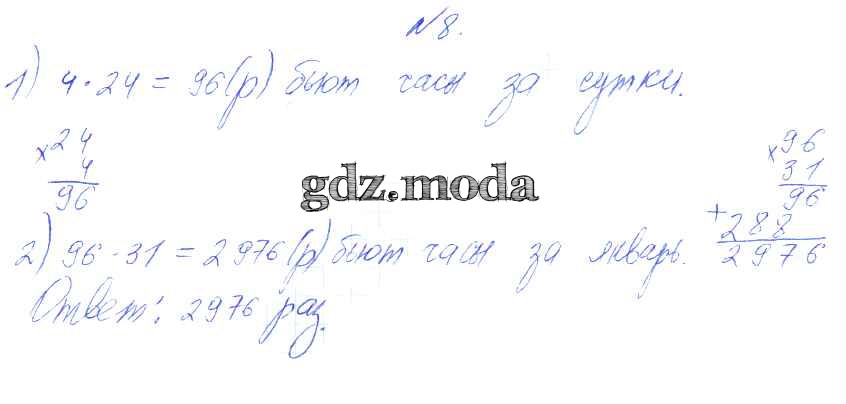 №8.
1) 4·24 = 96(р) бьют часы за сутки.
×24
4
96
×96
31
96
+288
2976
gdz.moda
2) 96·31 = 2976(р) бьют часы за январь.
Ответ: 2976 раз.